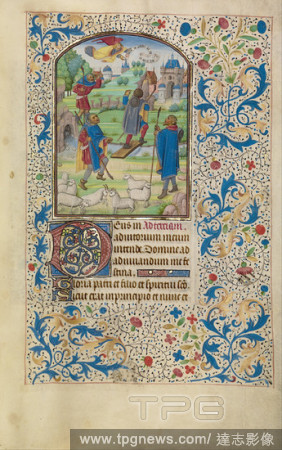 Deus in Adiutorium
adiutorium meum
intende Domine ad
adiuvandum me fest
tina.
Gloria patri et filio et spiritui sco
Sicut erat in principio et nunc et
TPG
www.tpgnews.com/ 達志影像